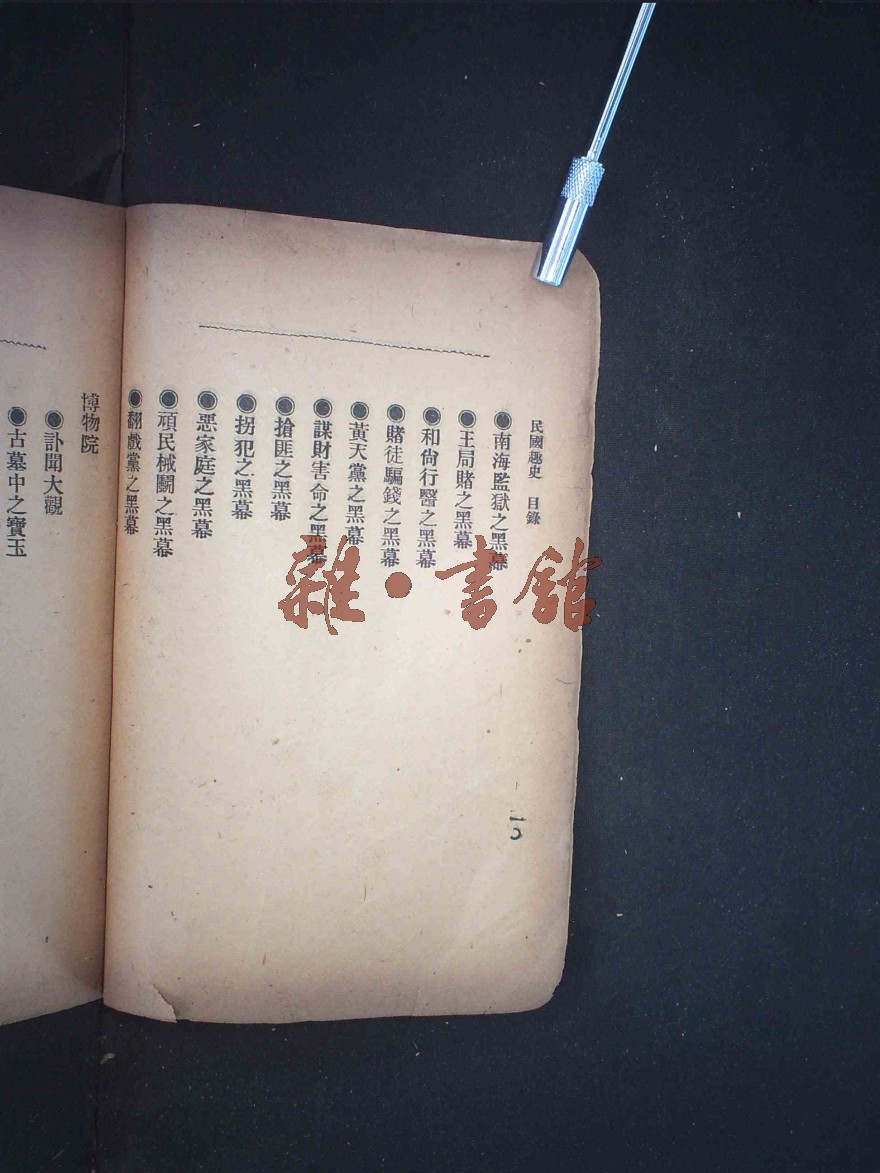 民國趣史　目錄
●南海監獄之黑幕
●王局賭之黑幕
●和尙行醫之黑幕
●賭徒騙錢之黑幕
●黃天黨之黑幕
●謀財害命之黑幕
●搶匪之黑幕
●拐犯之黑幕
●惡家庭之黑幕
●頑民械鬭之黑幕
●翻戲黨之黑幕
博物院
●訃聞大觀
●古墓中之寶玉
雜·書館